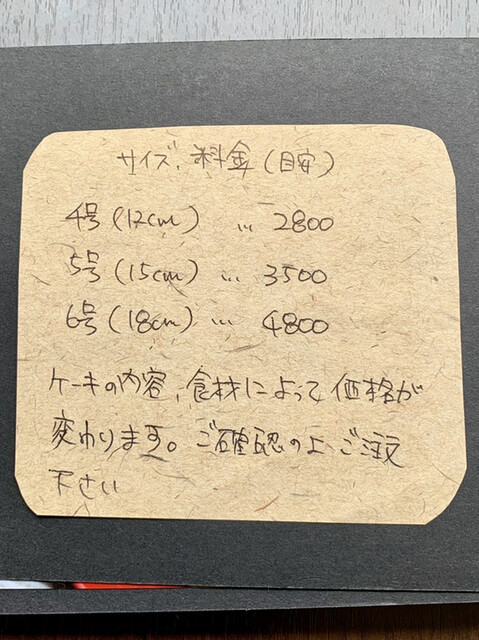 サイズ、料金(目安)
4号(12cm) … 2800
5号(15cm) … 3500
6号(18cm) … 4800
ケーキの内容、食材によって価格が
変わります。ご確認の上、ご注文
下さい